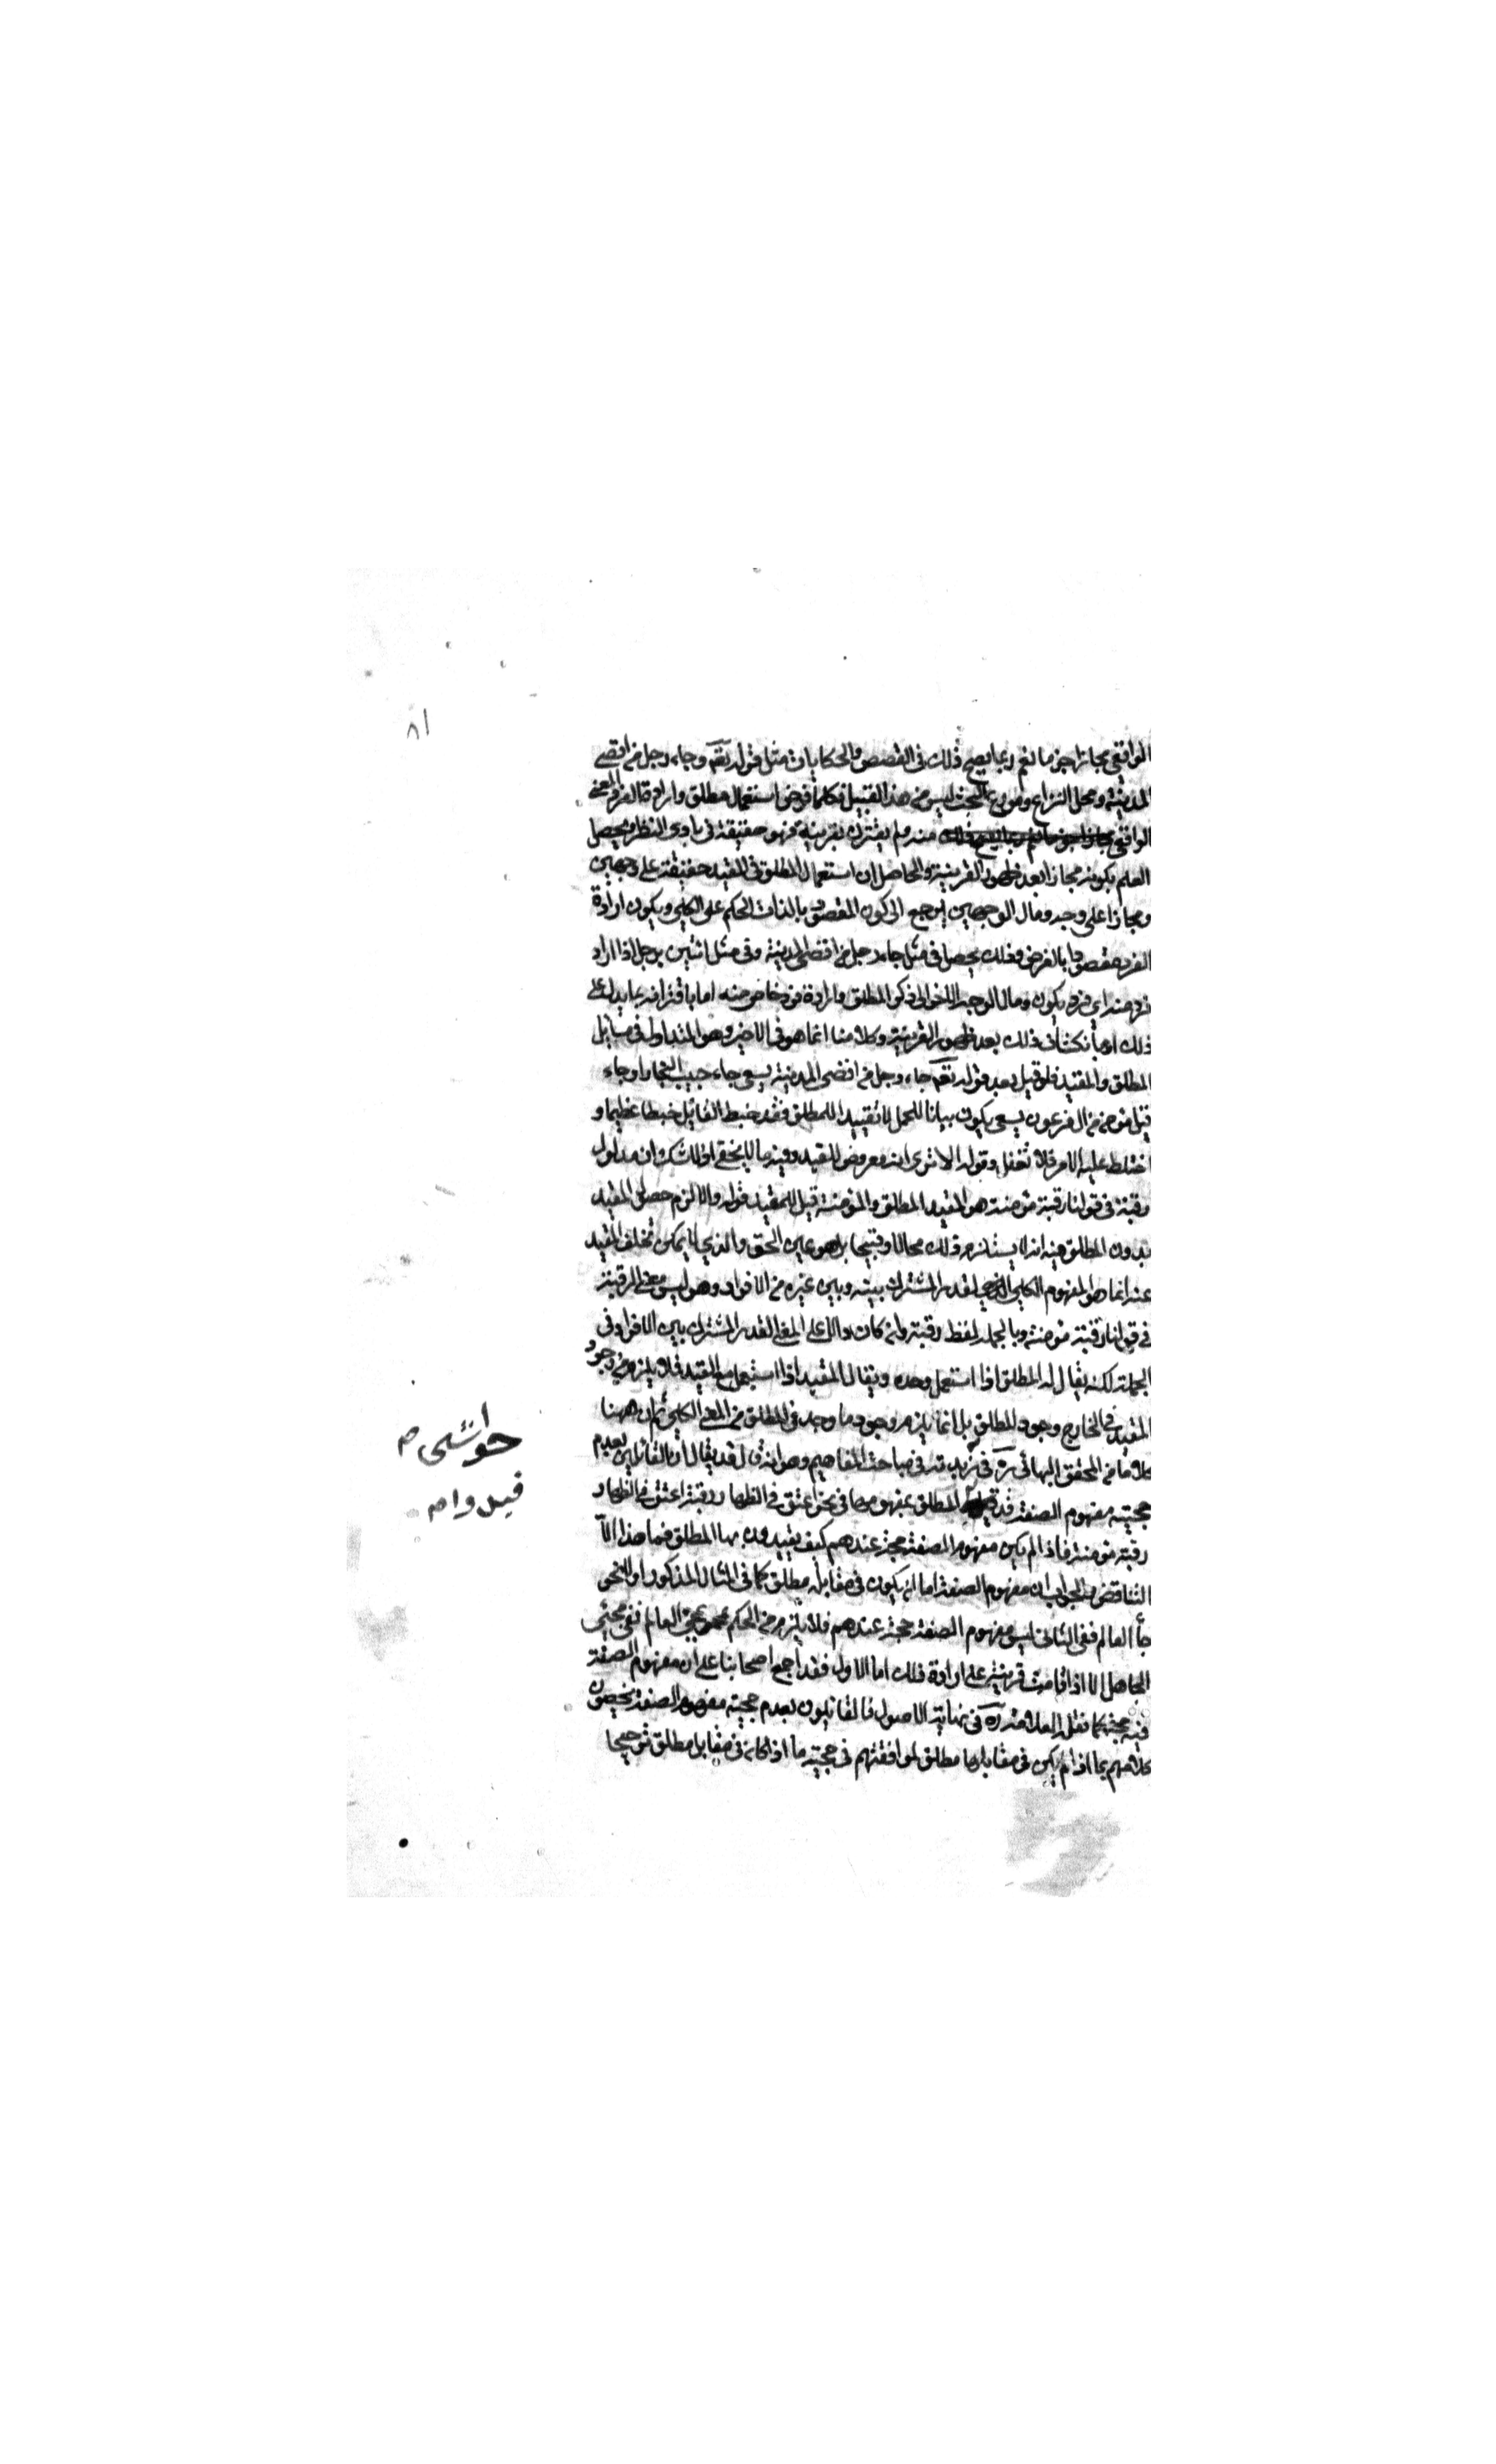 ٨١
الواقعي مجازا جزما نعم ربما يصح ذلك في القصص والحكايات مثل قوله تعالى وجاء رجل من اقصى
المدينة ومحل النزاع ومورد البحث ليس من هذا القبيل فكلما فرض استعمال مطلق وارادة الفرد المعين
الواقعي منه ولم يقترن بقرينة فهو حقيقة في بادي النظر ويحصل
العلم بكونه مجازا بعد ظهور القرينة والحاصل ان استعمال المطلق في المقيد حقيقة على وجهين
ومجازا على وجه ومال الوجهين يرجع الى كون المقصود بالذات الحكم على الكلي ويكون ارادة
الفرد مقصودا بالعرض وذلك يحصل في مثل جاء رجل من اقصى المدينة وفي مثل ائتني برجل اذا اراد
فرد منه اي فرد يكون ومال الوجه الاخر الى ذكر المطلق وارادة فرد خاص منه اما باقترانه بما يدل على
ذلك او بانكشاف ذلك بعد ظهور القرينة وكلامنا انما هو في الاخير وهو المتداول في مسائل
المطلق والمقيد فلو قيل بعد قوله تعالى جاء رجل من اقصى المدينة يسعى جاء حبيب النجار او جاء
مؤمن من ال فرعون يسعى يكون بيانا للمجمل لا تقييدا للمطلق فقد خبط القائل خبطا عظيما و
اختلط عليه الامر فلا تغفل وقوله الا ترى انه معروض للقيد وفيه ما لا يخفى اذ لا شك وان مدلول
رقبة في قولنا رقبة مؤمنة هو المقيد المطلق والمؤمنة قيل للمقيد قوله والا لزم حصول المقيد
بدون المطلق فيه انه لا يستلزم ذلك محالا وقبيحا بل هو عين الحق والذي لا يمكن تخلف المقيد
عنه انما هو المفهوم الكلي الذي لقدر المشترك بينه وبين غيره من الافراد وهو ليس معنى الرقبة
في قولنا رقبة مؤمنة وبالجملة لفظ رقبة وان كان دالا على المعنى القدر المشترك بين الافراد في
الجملة لكنه يقال له المطلق اذا استعمل وحده ويقال المقيد اذا استعمل مع القيد فلا يلزم من وجود
المقيد في الخارج وجود المطلق بل انما يلزم وجود ما وجد في المطلق من المعنى الكلي ثم ان ههنا
كلاما من المحقق البهائي ره في زبدته في مباحث المفاهيم وهو انه قال قد يقال ان القائلين بعدم
حجية مفهوم الصفة قد المطلق بمفهومها في نحو اعتق في الظهار رقبة اعتق في الظهار
رقبة مؤمنة فاذا لم يكن مفهوم الصفة حجة عندهم كيف يقيدون بها المطلق فما هذا الا
التناقض والجواب ان مفهوم الصفة اما ان يكون في مقابله مطلق كما في المثال المذكور او لا نحو
جاء العالم ففي الثاني ليس مفهوم الصفة حجة عندهم فلا يلزم من الحكم بمجيء العالم نفي مجيء
الجاهل الا اذا قامت قرينة على ارادة ذلك اما الاول فقد اجمع اصحابنا على ان مفهوم الصفة
فيه حجة كما نقله العلامة ره في نهاية الاصول فالقائلون بعدم حجية مفهوم الصفة يخصون
كلامهم بما اذا لم يكن في مقابلها مطلق لموافقتهم في حجية ما اذا كان في مقابل مطلق ترجيحا
حواشي م